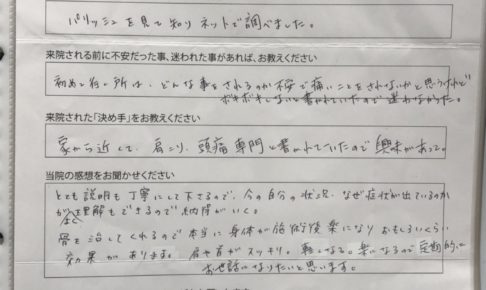 パリッシュを見て知りネットで調べました。
来院される前に不安だった事、迷われた事があれば、お教えください
初めて行く所は、どんな事をされるのか不安で痛いことをされないかと思うけれど
ボキボキしないと書かれていたので迷わなかった。
来院された「決め手」をお教えください
家から近くて、肩こり、頭痛専門と書かれていたので興味があって。
当院の感想をお聞かせください
とても説明も丁寧にして下さるので、今の自分の状況、なぜ症状が出ているのか
がよく理解もできるので納得がいく。
骨を治してくれるので本当に身体が施術後楽になりおもしろいくらい
効果があります。肩や首がスッキリ。軽くなる。楽になるので定期的に
お世話になりたいと思います。